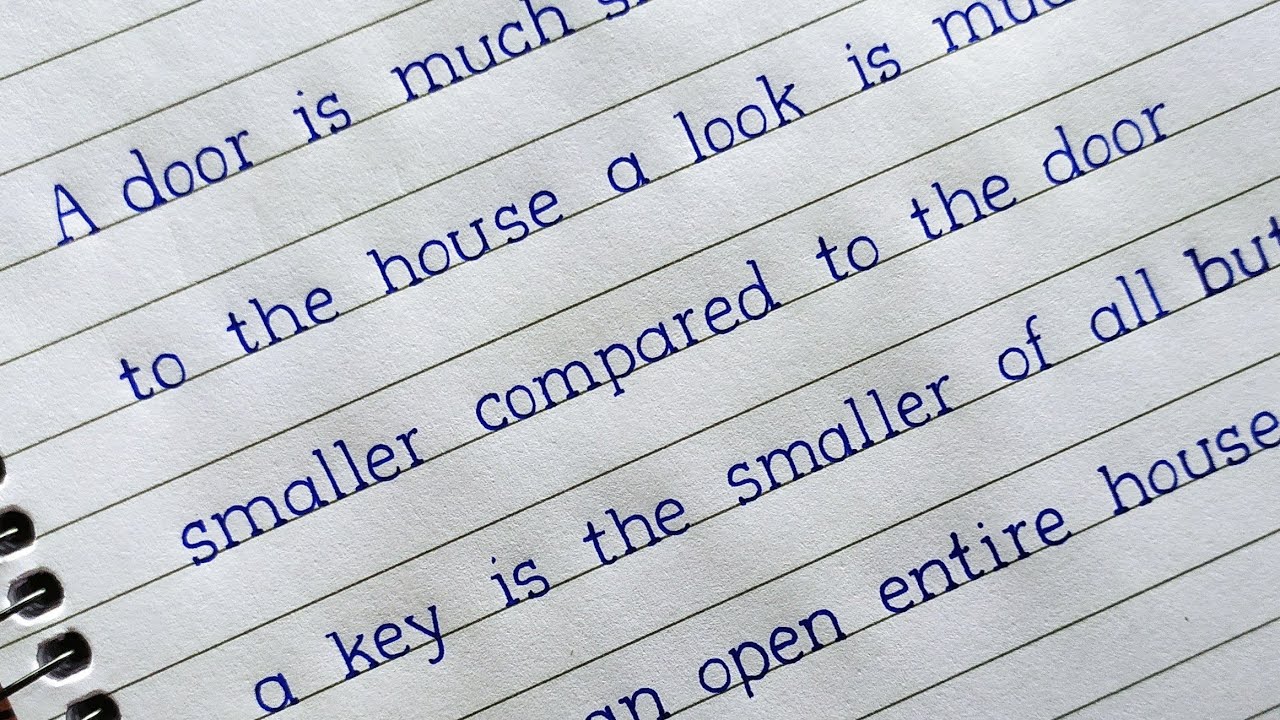 A door is much
to the house a look is
smaller compared to the door
a key is the smaller of all but
open entire house